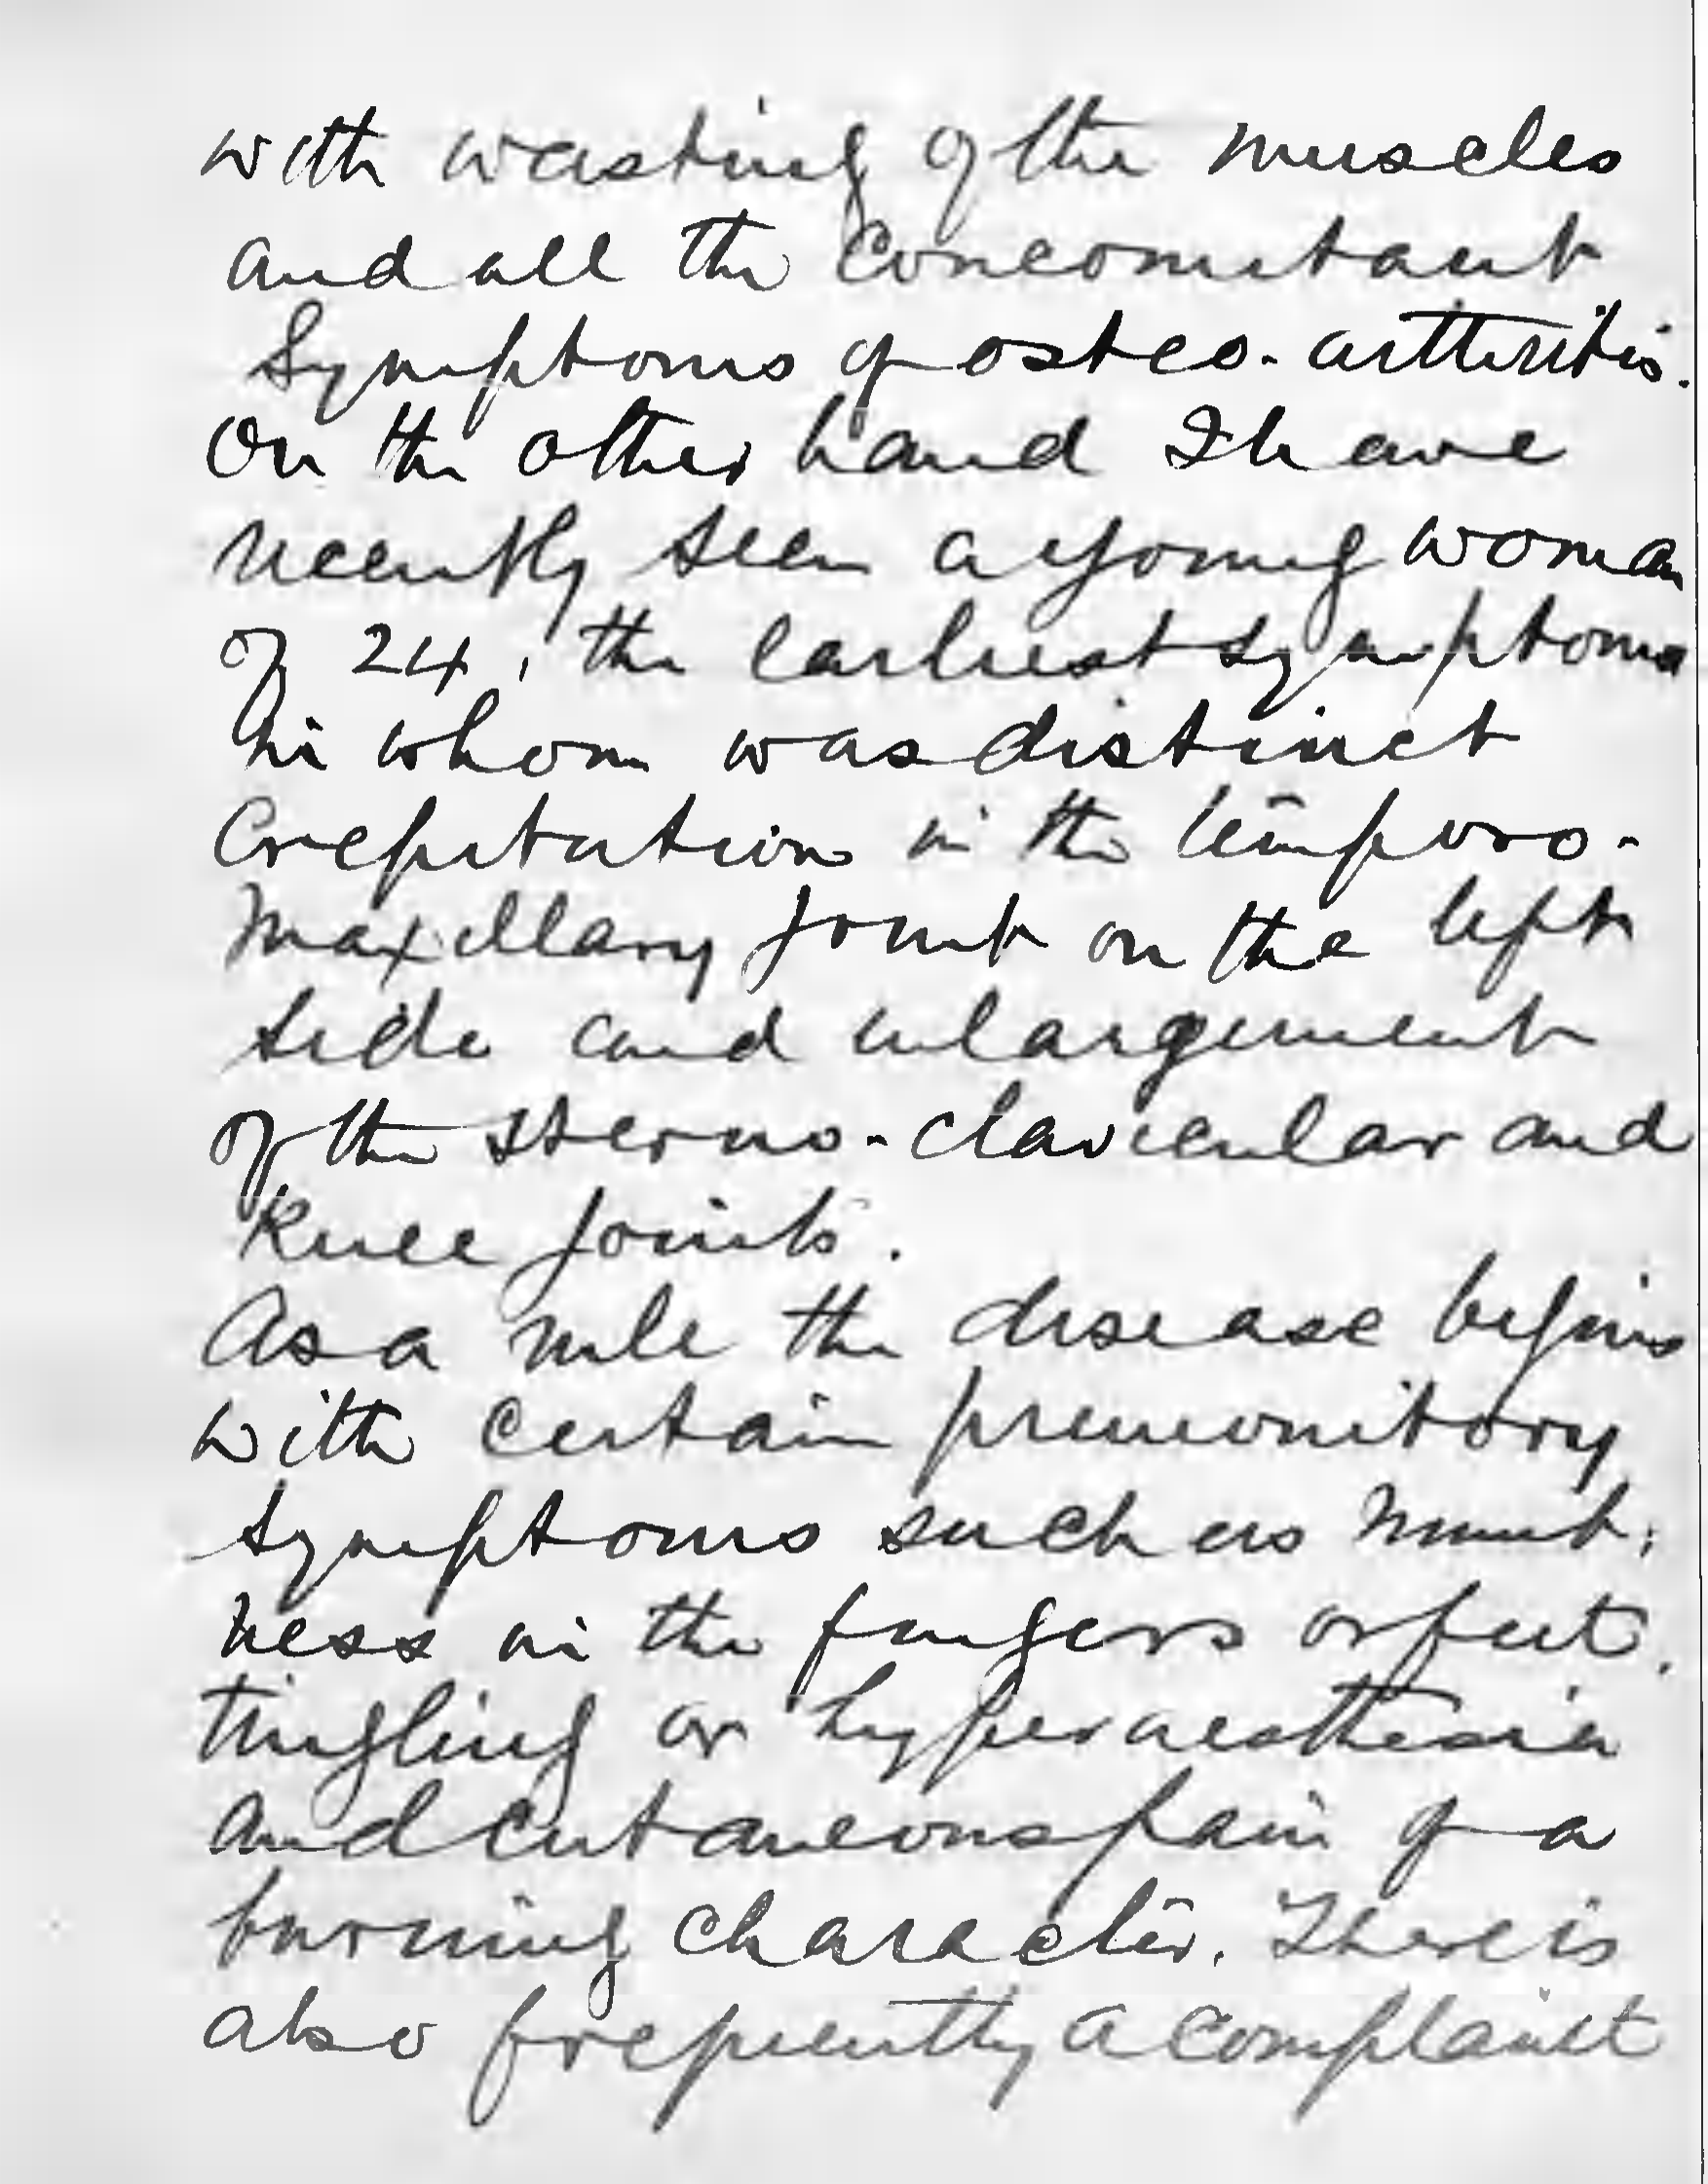 with wasting of the muscles
and all the concomitant
symptoms of osteo-arthritis.
On the other hand I have
recently seen a young woman
of 24, the earliest symptoms
in whom was distinct
crepitation in the temporo-
maxillary joint on the left
side and enlargement
of the sterno-clavicular and
knee joints.
As a rule the disease begins
with certain premonitory
symptoms such as numb-
ness in the fingers or feet,
tingling or hyperaesthesia
and cutaneous pain of a
burning character. There is
also frequently a complaint